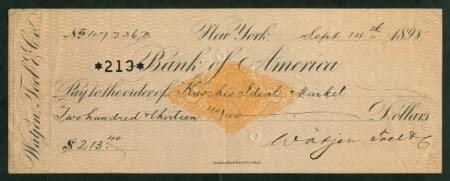 No 47236B New York Sept 14th 1898
*213* Bank of America
Pay to the order of Market
Two hundred & thirteen no/100 Dollars
$ 213.40 Wätjen Toel & Co
Watjen, Toel & Co.